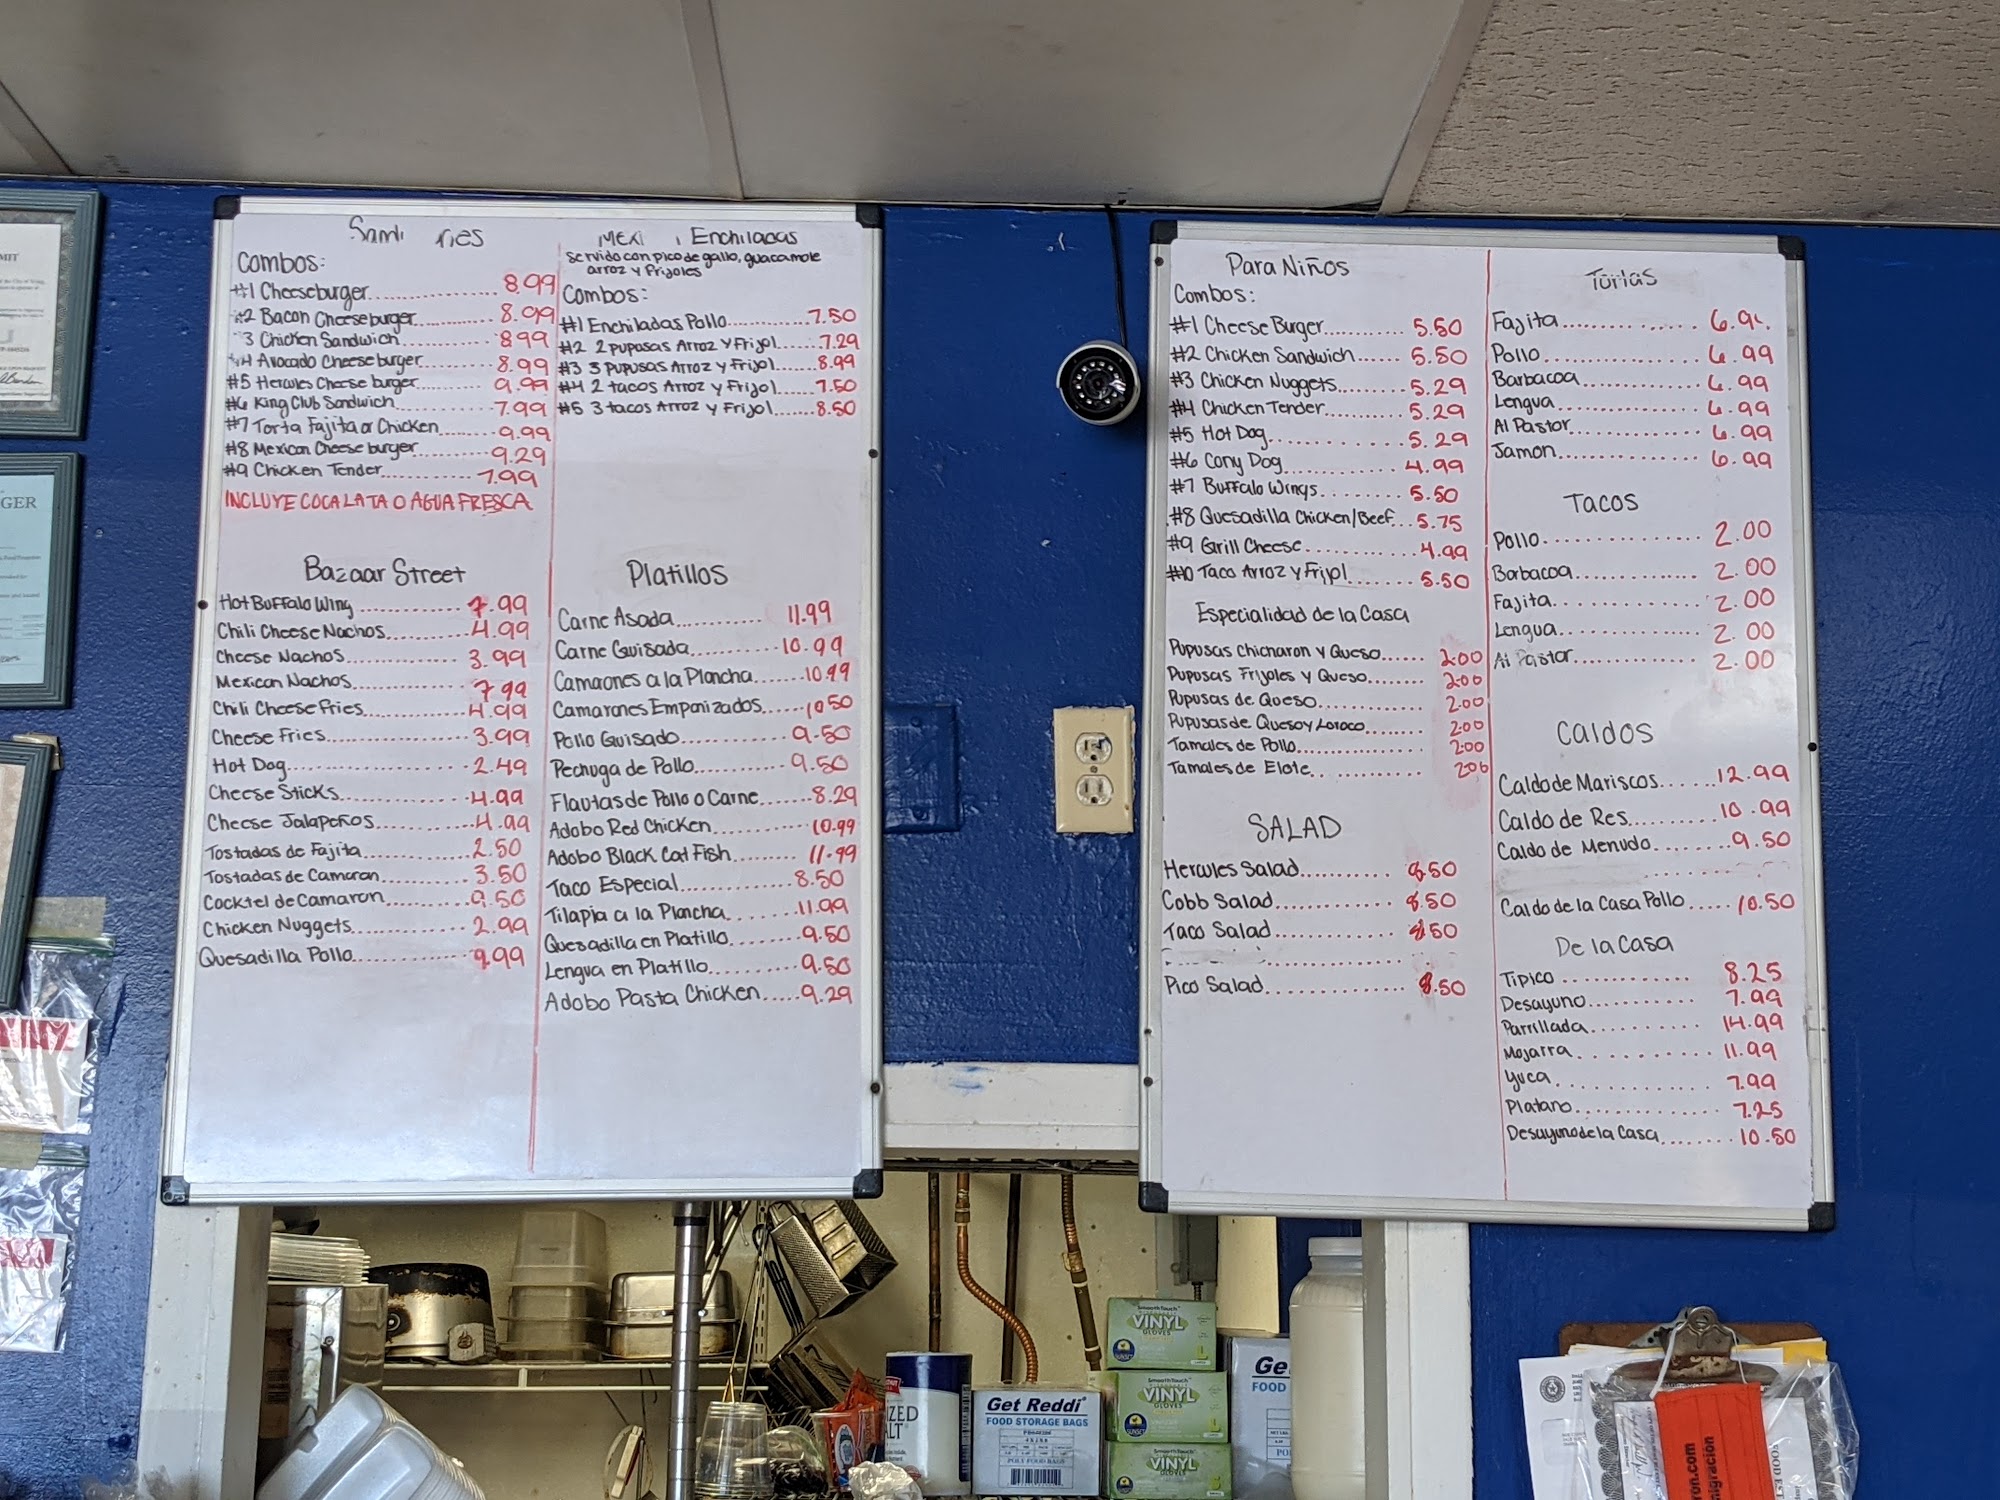 Combos:
#1 Cheeseburger..................... 8.99
#2 Bacon Cheeseburger............ 8.99
3 Chicken Sandwich............... 8.99
#4 Avocado Cheeseburger.......... 8.99
#5 Hercules Cheese burger......... 9.99
#6 King Club Sandwich............... 7.99
#7 Torta Fajita or Chicken.......... 9.99
#8 Mexican Cheese burger........... 9.29
#9 Chicken Tender................. 7.99
INCLUYE COCA LATA O AGUA FRESCA
Bazaar Street
Hot Buffalo Wing .............. 7.99
Chili Cheese Nachos........... 4.99
Cheese Nachos................. 3.99
Mexican Nachos............... 7.99
Chili Cheese Fries............. 4.99
Cheese Fries................... 3.99
Hot Dog........................ 2.49
Cheese Sticks................. 4.99
Cheese Jalapeños............. 4.99
Tostadas de Fajita............. 2.50
Tostadas de Camaron........... 3.50
Cocktel de Camaron............ 9.50
Chicken Nuggets............... 2.99
Quesadilla Pollo............... 9.99
Enchiladas
Servido con pico de gallo, guacamole
arroz y Frijoles
Combos:
#1 Enchiladas Pollo............ 7.50
#2 2 pupusas Arroz y Frijol...... 7.29
#3 3 pupusas Arroz y Frijol...... 8.99
#4 2 tacos Arroz y Frijol........ 7.50
#5 3 tacos Arroz y Frijol...... 8.50
Platillos
Carne Asada............... 11.99
Carne Guisada........... 10.99
Camaones a la Plancha....... 10.99
Camarones Empanizados...... 10.50
Pollo Guisado............ 9.50
Pechuga de Pollo........... 9.50
Flautas de Pollo o Carne....... 8.29
Adobo Red Chicken........... 10.99
Adobo Black Cat Fish......... 11.99
Taco Especial.............. 8.50
Tilapia a la Plancha........ 11.99
Quesadilla en Platillo........ 9.50
Lengua en Platillo........... 9.50
Adobo Pasta Chicken..... 9.29
Para Niños
Combos:
#1 Cheese Burger........... 5.50
#2 Chicken Sandwich....... 5.50
#3 Chicken Nuggets......... 5.29
#4 Chicken Tender.......... 5.29
#5 Hot Dog................. 5.29
#6 Cony Dog............... 4.99
#7 Buffalo Wings......... 5.50
#8 Quesadilla Chicken/Beef... 5.75
#9 Grill Cheese............ 4.99
#10 Taco Arroz y Frijol...... 5.50
Especialidad de la Casa
Pupusas Chicharon y Queso...... 2.00
Pupusas Frijoles y Queso........ 2.00
Pupusas de Queso............. 2.00
Pupusas de Queso y Loroco........... 2.00
Tamales de Pollo............. 2.00
Tamales de Elote............. 2.00
SALAD
Hercules Salad............ 8.50
Cobb Salad............... 8.50
Taco Salad............... 8.50
Pico Salad.................. 8.50
Fajita................... 6.9
Pollo.................... 6.99
Barbacoa............... 6.99
Lengua.................. 6.99
Al Pastor............... 6.99
Jamon................... 6.99
Tacos
Pollo.................... 2.00
Barbacoa............... 2.00
Fajita.................. 2.00
Lengua.................. 2.00
Al Pastor............... 2.00
Caldos
Caldo de Mariscos...... 12.99
Caldo de Res........... 10.99
Caldo de Menudo........ 9.50
Caldo de la Casa Pollo..... 10.50
De la Casa
Tipico.................. 8.25
Desayuno............... 7.99
Parrillada............. 14.99
Mojarra................. 11.99
Yuca.................... 7.99
Platano................. 7.25
Desayuno de la Casa........ 10.50
GER
SmoothTouch
VINYL
GLOVES
SmoothTouch
VINYL
GLOVES
SmoothTouch
VINYL
Get Reddi
FOOD STORAGE BAGS
POLY FOOD BAGS
Ge
FOOD